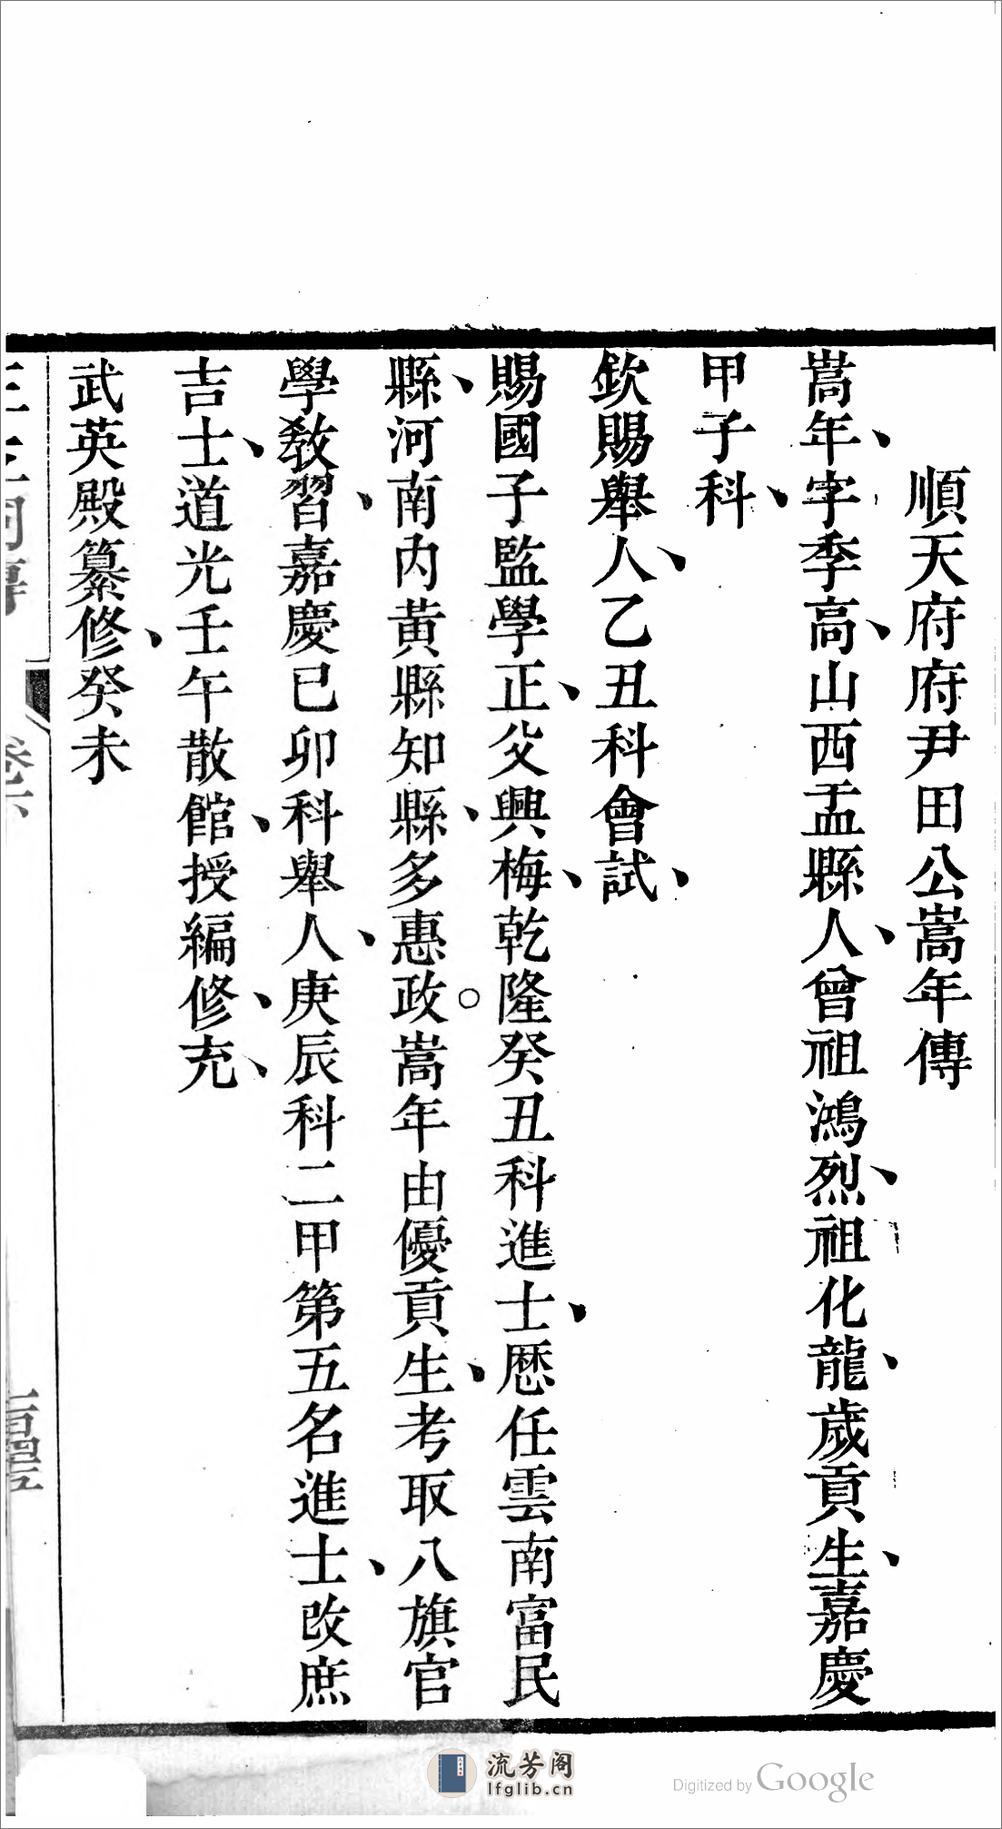 順天府府尹田公嵩年傳
嵩年、字季高、山西盂縣人、曾祖鴻烈、祖化龍、歲貢生、嘉慶
甲子科、
欽賜舉人、乙丑科會試、
賜國子監學正、父興梅、乾隆癸丑科進士、歷任雲南富民
縣、河南內黃縣知縣、多惠政○嵩年由優貢生、考取八旗官
學教習、嘉慶己卯科舉人、庚辰科二甲第五名進士、改庶
吉士、道光壬午散館、授編修、充、
武英殿纂修、癸未
卷六
流芳阁
lfglib.cn
Digitized by Google